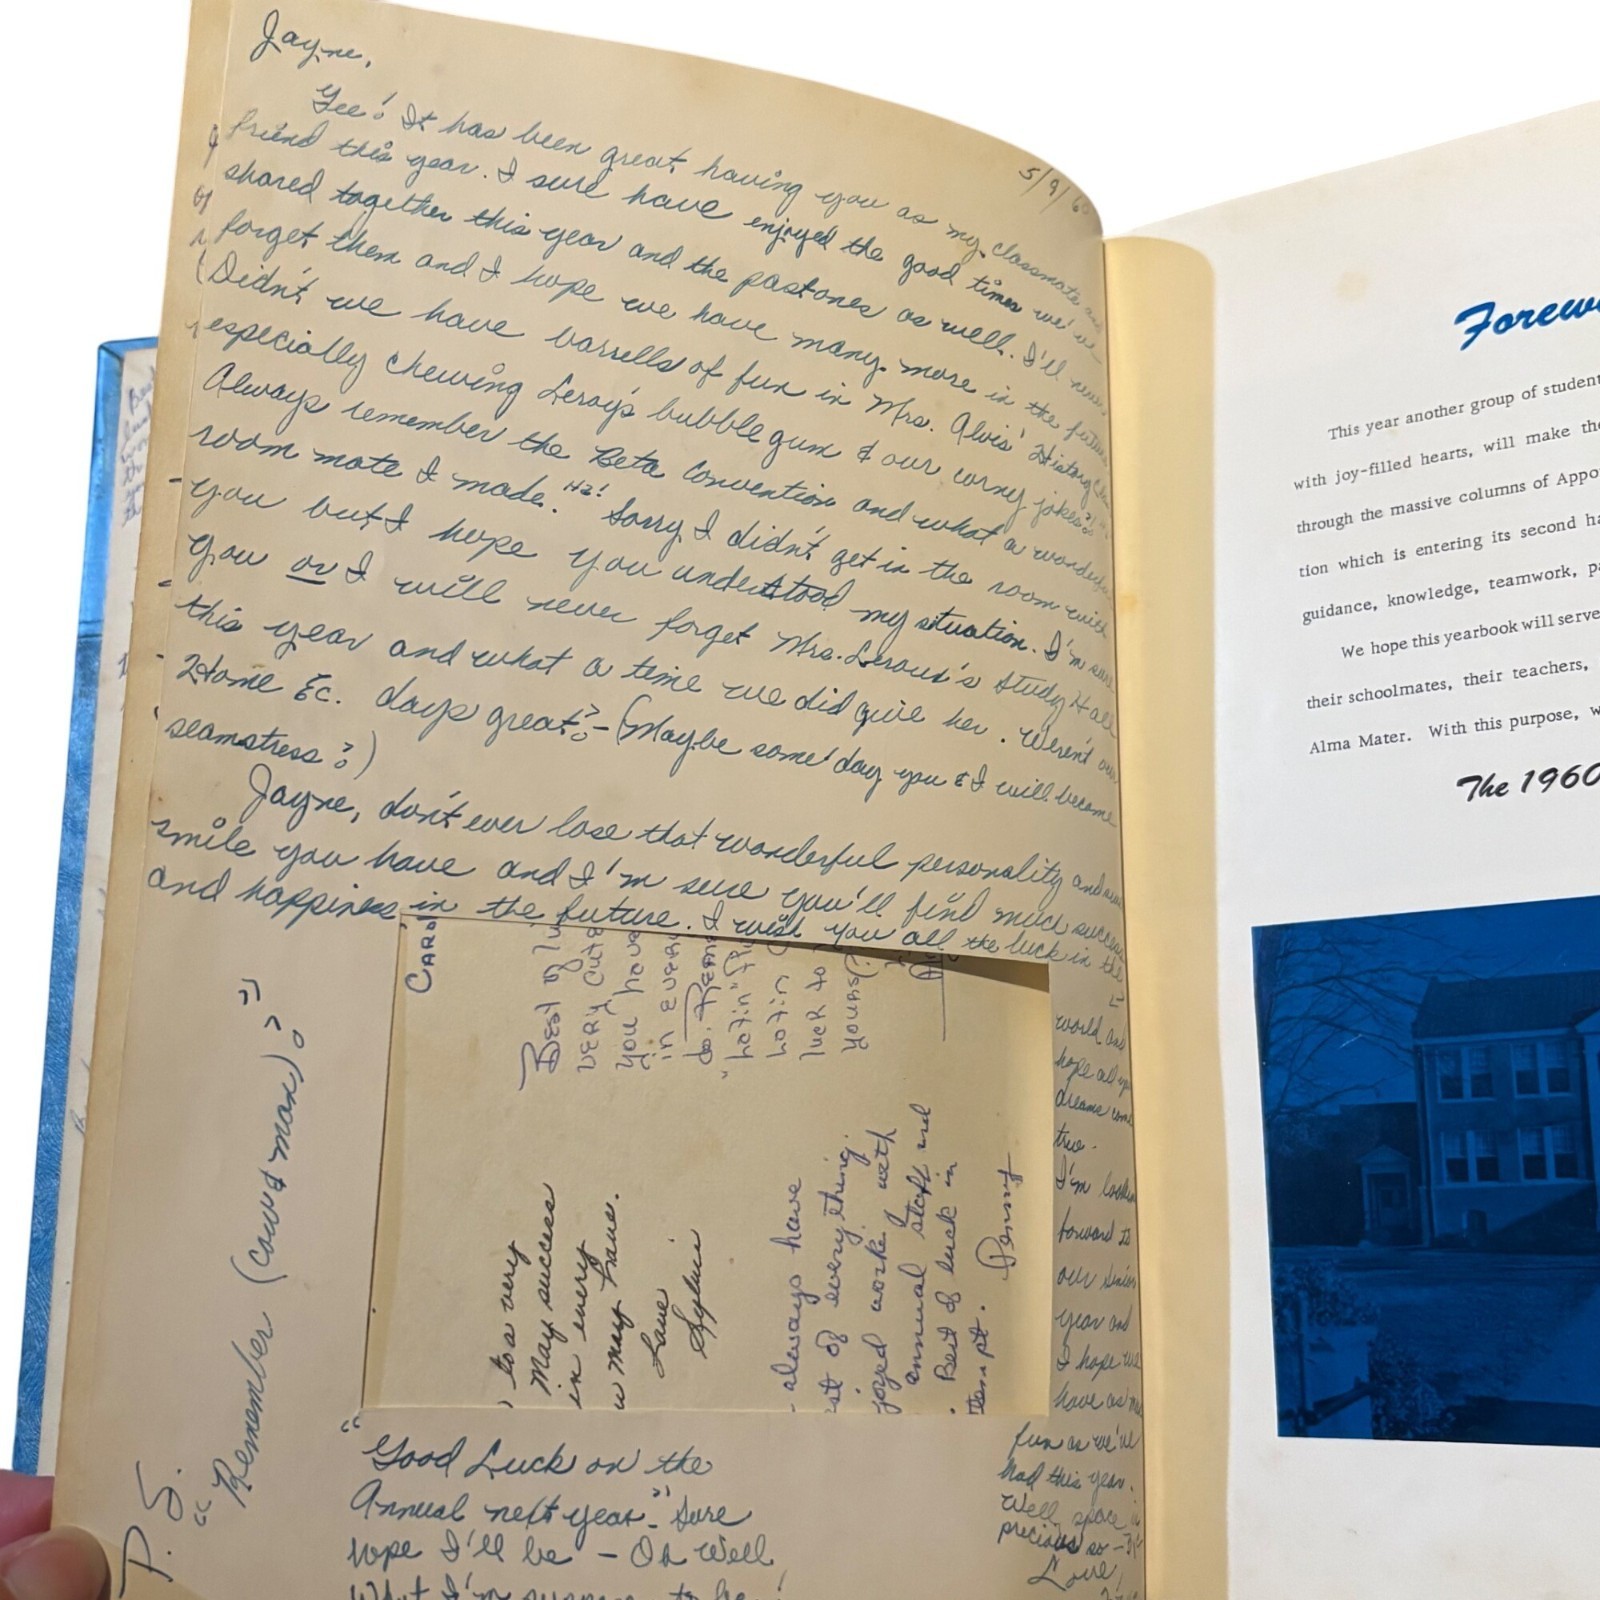 Jayne,
5/9/60
Gee! It has been great having you as my classmate and
friend this year. I sure have enjoyed the good times we've
shared together this year and the past ones as well. I'll never
forget them and I hope we have many more in the future
(Didn't we have barrells of fun in Mrs. Alvis' History Class
especially chewing Leroy's bubble gum & our corny jokes?!
Always remember the Beta Convention and what a wonderful
room mate I made. "Ha!" Sorry I didn't get in the room with
you but I hope you understood my situation. I'm sure
you or I will never forget Mrs. Leroux's Study Hall
this year and what a time we did give her. Weren't our
Home Ec. days great? - (Maybe some day you & I will become
seamstress?)
Jayne, don't ever lose that wonderful personality and
smile you have and I'm sure you'll find much success
and happiness in the future. I wish you all the luck in the
world and
hope all your
dreams come
true.
I'm lookin
forward to
our senior
year and
I hope we
have as much
fun as we've
had this year.
Well, space is
precious so -
Love,
CARO
Best of lu
very cute
you have
in every
to. Reme
"hotin"
hotin
luck to
yours
to a very
May success
in every
u may have.
Love
Sylvia
always have
st of everything.
joyed working with
annual staff and
Best of luck in
tempt.
Penny
P.S.
"Remember (cow & man)?"
"Good Luck on the
Annual next year" - Sure
hope I'll be - Oh Well,
What I'm suppose to be!
Forew
This year another group of student
with joy-filled hearts, will make the
through the massive columns of Appo
tion which is entering its second ha
guidance, knowledge, teamwork, pa
We hope this yearbook will serve
their schoolmates, their teachers,
Alma Mater. With this purpose, w
The 1960